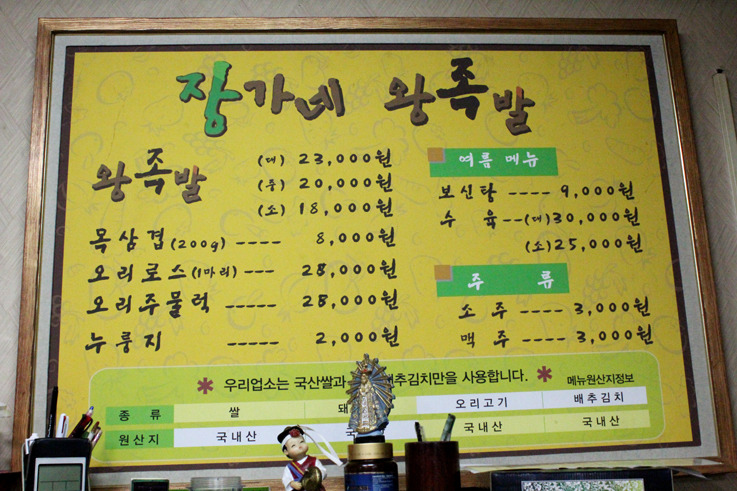 장가네 왕족발
왕족발 (대) 23,000원
(중) 20,000원
(소) 18,000원
목삼겹(200g) ----- 8,000원
오리로스(1마리) --- 28,000원
오리주물럭 ----- 28,000원
누룽지 ----- 2,000원
여름 메뉴
보신탕 ---- 9,000원
수 육--(대)30,000원
(소)25,000원
주 류
소 주 ---- 3,000원
맥 주 ---- 3,000원
* 우리업소는 국산쌀과 배추김치만을 사용합니다. * 메뉴원산지정보
종 류 쌀 돼 오리고기 배추김치
원산지 국내산 국 국내산 국내산